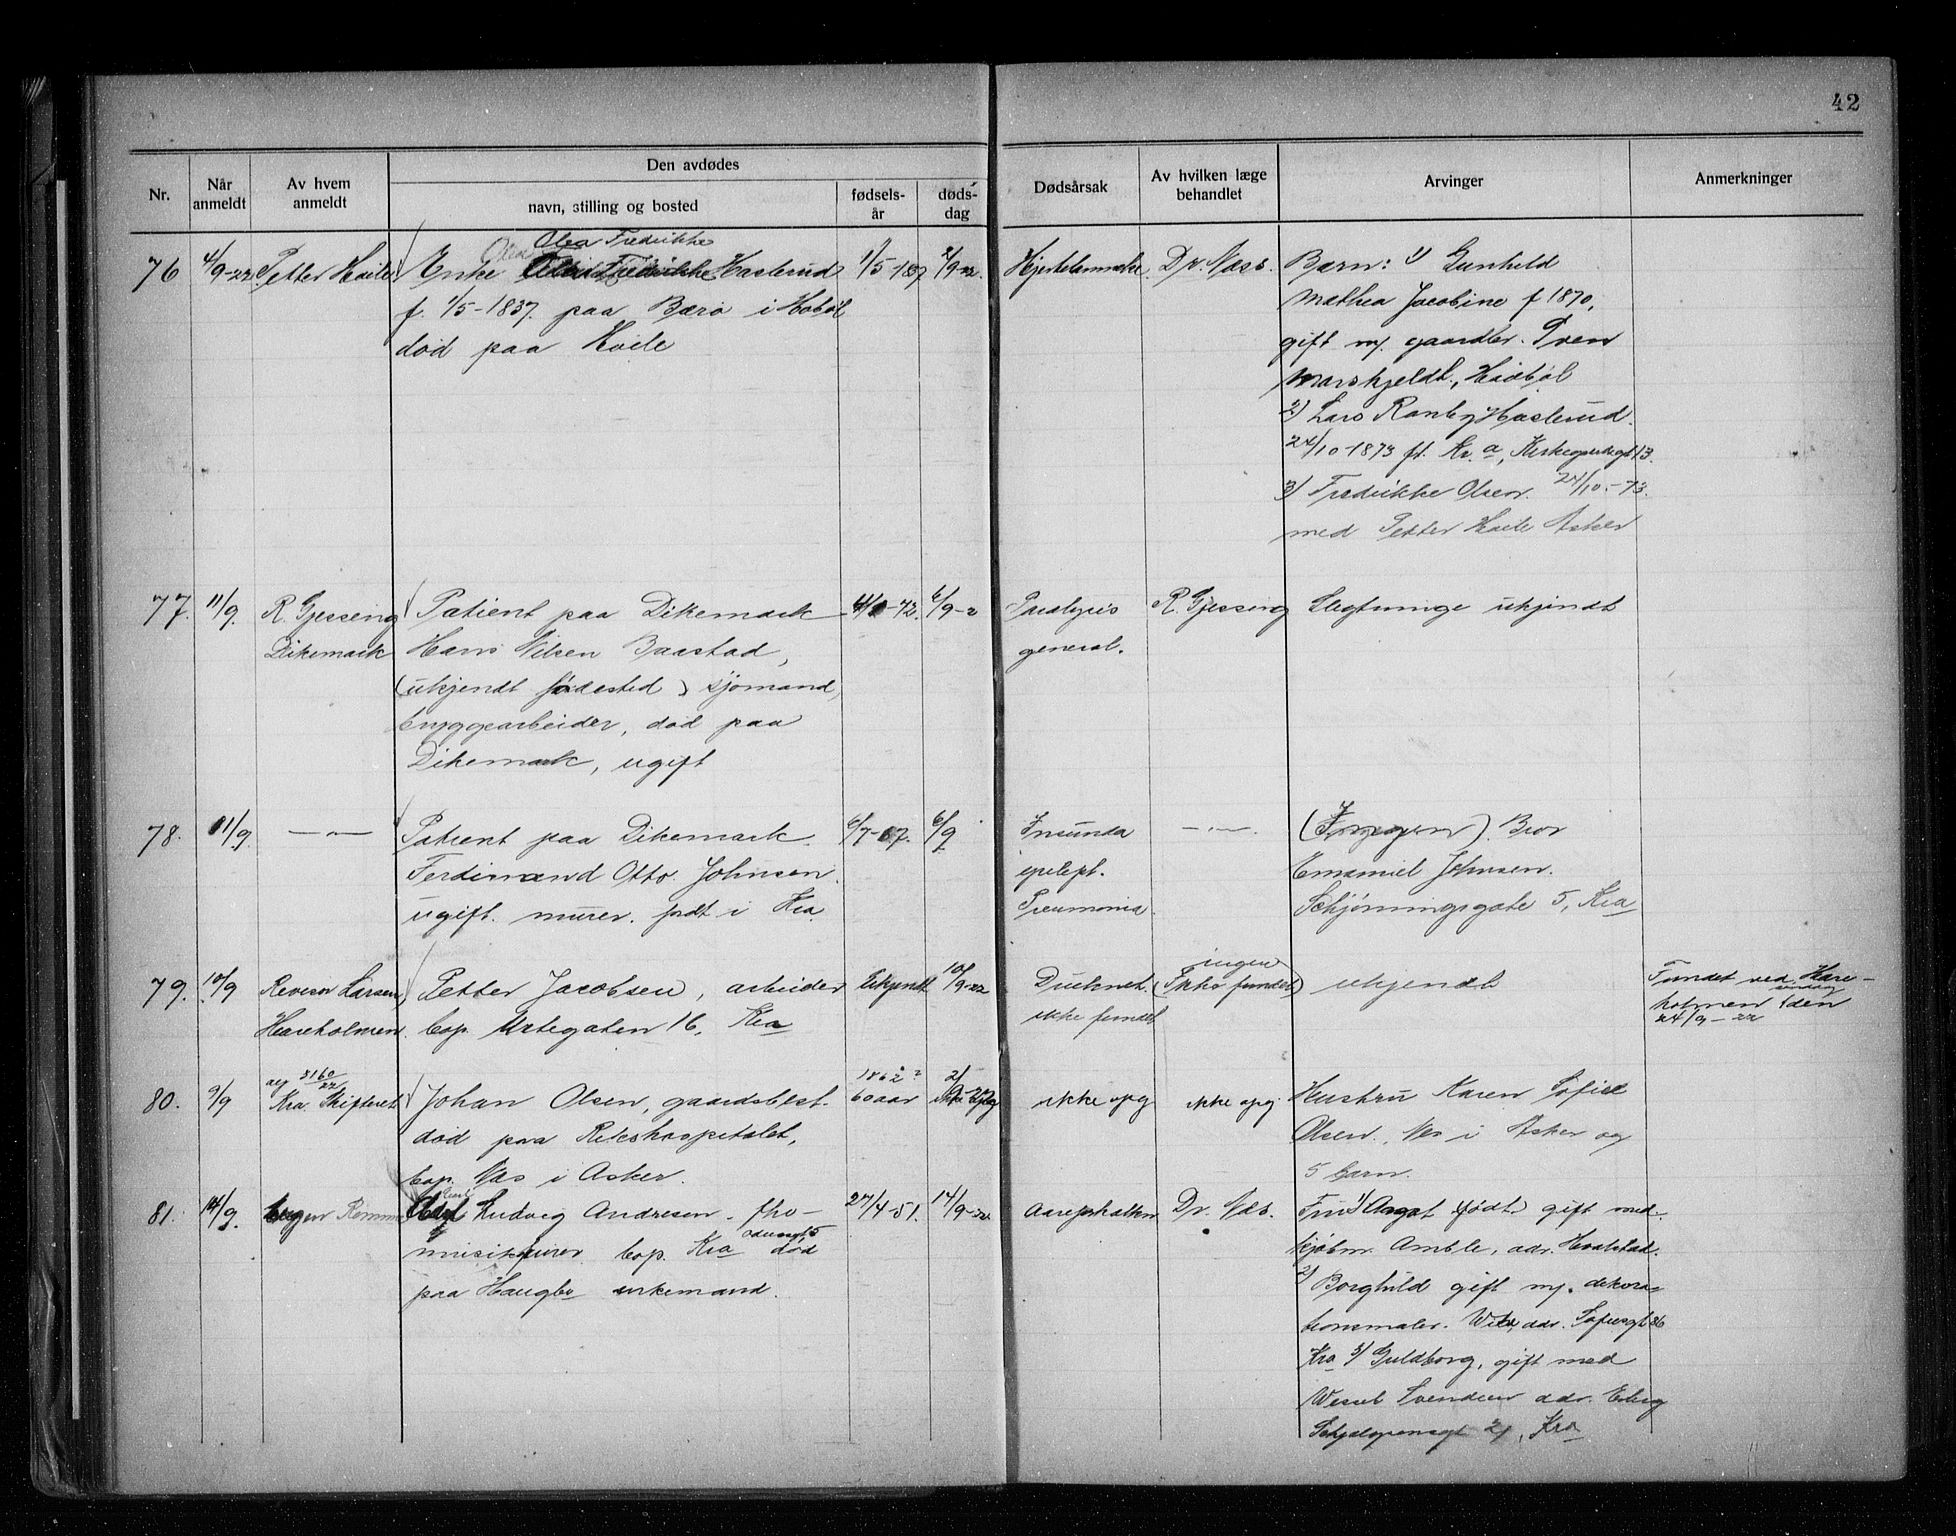 42
Nr.
Når anmeldt
Av hvem anmeldt
Den avdødes
navn, stilling og bosted
fødsels-år
døds-dag
Dødsårsak
Av hvilken læge behandlet
Arvinger
Anmerkninger
76
4/9-22
Petter Hvile
Olea Fredrikke
Enke Haslerud
f. 1/5-1837. paa Bærø i Hobøl
død paa Hvile
1/5-1837
2/9-22.
Hjertelammelse
Dr. Næss.
Barn: 1) Gunhild
Mathea Jacobine f 1870,
gift m/. gaardbr. Sven
Marskjeldt., Haabøl
2) Lars Ranby Haslerud.
24/10-1873 ft. Kr.a, 13.
3) Fredrikke Olsen. 24/10.-73.
med Petter Hvile Asker
77.
11/9.
R. Gjessing
Dikemark
Patient paa Dikemark
Hans Nilsen Baastad,
(ukjendt fødested) sjømand,
bryggearbeider, død paa
Dikemark, ugift
-72.
6/9-2
Paralysis
general.
R. Gjessing
Slegtninge ukjendt
78.
11/9.
— " —
Patient paa Dikemark.
Ferdinand Otto. Johnsen.
ugift. murer. født i Kra
6/7-
6/9
epilept.
Pneumonia.
— " —.
Bror
Emanuel Johnsen.
Schjønningsgate 5, Kra
79.
10/9
Revisor Larsen
Hareholmen.
Petter Jacobsen, arbeider
bop. Urtegaten 16, Kra
Ukjendt
10/9-22
Druknet.
ikke fundet
ingen
ukjendt
Fundet ved Hare-
holmen den
24/9-22
80.
9/9
3160/22
Kra. Skifteret
Johan Olsen, gaardsbest.
død paa Rikshospitalet,
bop. Næs i Asker.
1862?
60 aar
2/
ikke opg
ikke opg.
Hustru Karen Sofie
Olsen, Nes i Asker og
5 barn.
81.
14/9.
Ludvig Andresen. fho-
bop. Kra død
paa Haugbo enkemand.
27/4-51.
14/9-22
Aareforkalkn
Dr. Næs.
født gift med.
kjøbm. Amble, adr. Hvalstad.
2) Borghild gift m/. dekora-
tionsmaler. adr. Sofiesgt 86
Kra 3) Guldborg, gift med
Wessel Svendsen adr. Erling
Skjalgsensgt 21, Kra